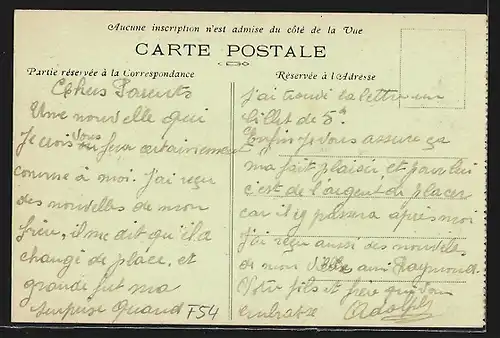 Aucune inscription n'est admise du côté de la Vue
CARTE POSTALE
Partie réservée à la Correspondance
Réservée à l'Adresse
Chers Parents
Une nouvelle qui
Je crois vous fera certainement
comme à moi. J'ai reçu
des nouvelles de mon
frère, il me dit qu'il a
changé de place, et
grande fut ma
surprise quand
F54
j'ai trouvé sa lettre un
billet de 5f
Enfin je vous assure ça
ma fait plaisir et pour lui
c'est de l'argent de placer
car il y passera après moi
J'ai reçu aussi des nouvelles
de mon ami Raymond.
Votre fils et frère qui vous
embrasse Adolphe